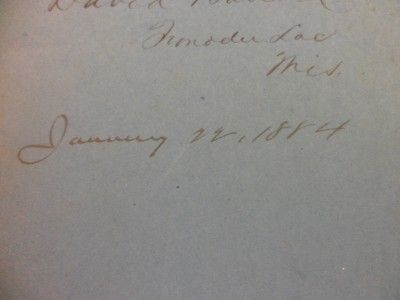 David
Fonodu Lac
Wis.
January 22, 1884